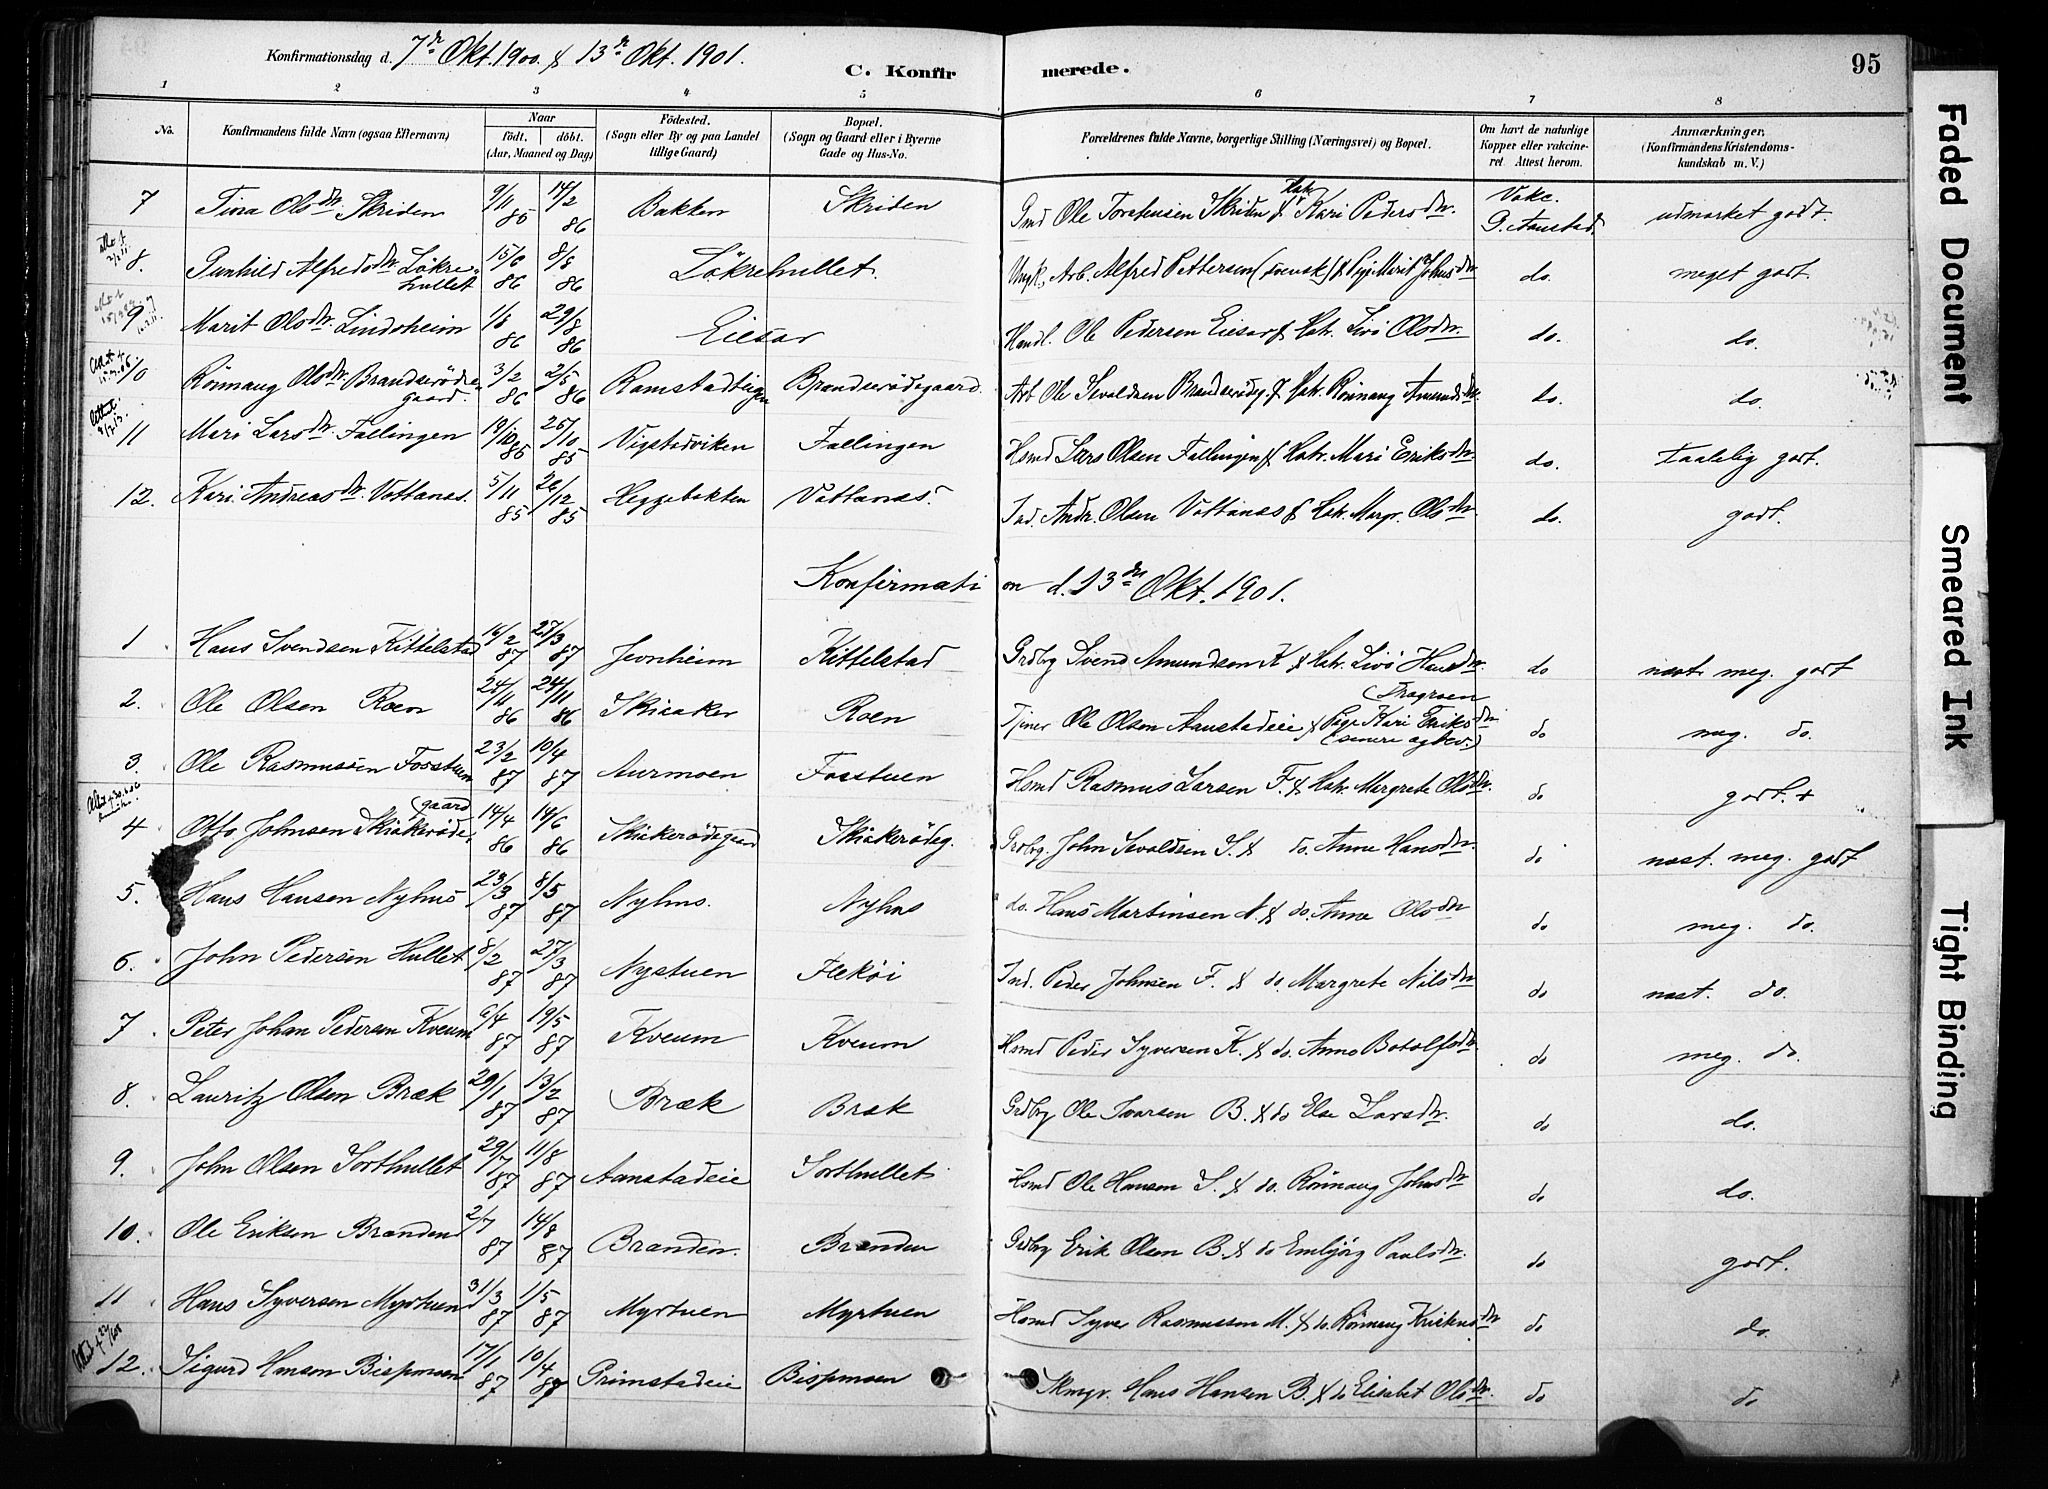 Konfirmationsdag d. 7de Okt. 1900 & 13de Okt. 1901.
C. Konfirmerede.
95
1 2 3 4 5 6 7 8
No. Konfirmandens fulde Navn (ogsaa Efternavn) Naar født, døbt. (Aar, Maaned og Dag) Fødested. (Sogn eller By og paa Landet tillige Gaard) Bopæl. (Sogn og Gaard eller i Byerne Gade og Hus-No. Forældrenes fulde Navne, borgerlige Stilling (Næringsvei) og Bopæl. Om havt de naturlige Kopper eller vakcineret. Attest herom. Anmærkninger. (Konfirmandens Kristendomskundskab m. V.)
7 Tina Olsdtr. Skriden 9/11 85 14/2 86 Bakken Skriden Gmd Ole Torstensen Skriden & Hstr. Kari Pedersdtr. Vakc. G. Aanstad. udmærket godt.
8. Gunhild Alfredsdtr. Løkrehullet 15/6 86 8/8 86 Løkrehullet. Ungk., Arb. Alfred Pettersen (svensk) & Pige Marit Johnsdtr do. meget godt.
9 Marit Olsdtr. Lindsheim 1/8 86 29/8 86 Eilsar Handl. Ole Pedersen & Hstr. Livö Olsdtr. do. do.
10 Rönnaug Olsdtr. Brandsrödegaard. 3/2 86 2/5 86 Ramstadteigen Brandsrödegaard. Arb Ole Sevaldsen Brandsrödeg. & Hstr. Rönnaug Amundsdtr. do. do.
11 Mari Larsdtr. Fallingen 19/10 85 25/10 85 Vigstadviken Fallingen Hsmd Lars Olsen Fallingen & Hstr. Mari Eriksdtr. do. Taalelig godt.
12. Kari Andreasdtr. Vottanæs. 5/11 85 26/12 85 Heggebakken Vottanæs. Ind. Andr. Olsen Vottanæs & Hstr. Margr. Olsdtr. do. godt.
Konfirmation d. 13de Okt. 1901.
1 Hans Svendsen Kittelstad 16/2 87 27/3 87 Jevnheim Kittelstad Grdbrg Svend Amundsen K & Hstr. Livö Hansdtr. do næst meg. godt
2. Ole Olsen Roen 24/11 86 Skiaker Roen Tjener Ole Olsen Aanstadeie & Pige Kari Eriksdtr do meg. do.
3. Ole Rasmussen Fosstuen 23/2 87 10/4 87 Aurmoen Fosstuen Hsmd Rasmus Larsen F. & Hstr. Margrete Olsdtr. do godt. +
4 Otto Johnsen Skiakerödegaard 14/4 86 14/6 86 Skiakerödegaard Skiakerödeg. Grdbrg. John Sevaldsen S. & do. Anne Hansdtr. do næst. meg. godt
5. Hans Hansen Nyhus 23/3 87 8/5 87 Nyhus. Nyhus do. Hans Martinsen N. & do. Anne Olsdtr do meg. do.
6. John Pedersen Hullet 8/2 87 27/3 87 Nystuen Flekøi Ind. Peder Johnsen F. & do. Margrete Nilsdtr do næst. do.
7 Peter Johan Pedersen Kveum 6/4 87 19/5 87 Kveum Kveum Hsmd Peder Syversen K. & do. Anne Botolfsdtr. do meg. do.
8. Lauritz Olsen Bræk 29/1 87 13/2 87 Bræk Bræk Grdbrg Ole Ivarsen B. & do Else Larsdtr. do do.
9. John Olsen Sorthullet 29/7 87 11/8 87 Aanstadeie Sorthullet Hsmd Ole Hansen S. & do. Rönnaug Johnsdtr do do.
10. Ole Eriksen Brænden 2/7 87 14/8 87 Brænden. Brænden Grdbrg Erik Olsen B. & do Embjörg Paulsdtr. do godt.
11 Hans Syversen Myrtuen 31/3 87 1/5 87 Myrtuen Myrtuen Hsmd Syver Rasmussen M. & do. Rönnaug do do.
12. Sigurd Hansen Bispmoen 17/1 87 10/4 87 Grimstadeie Bispmoen Skmgr. Hans Hansen B. & do Elisabet Olsdtr. do do
Faded Document
Smeared Ink
Tight Binding